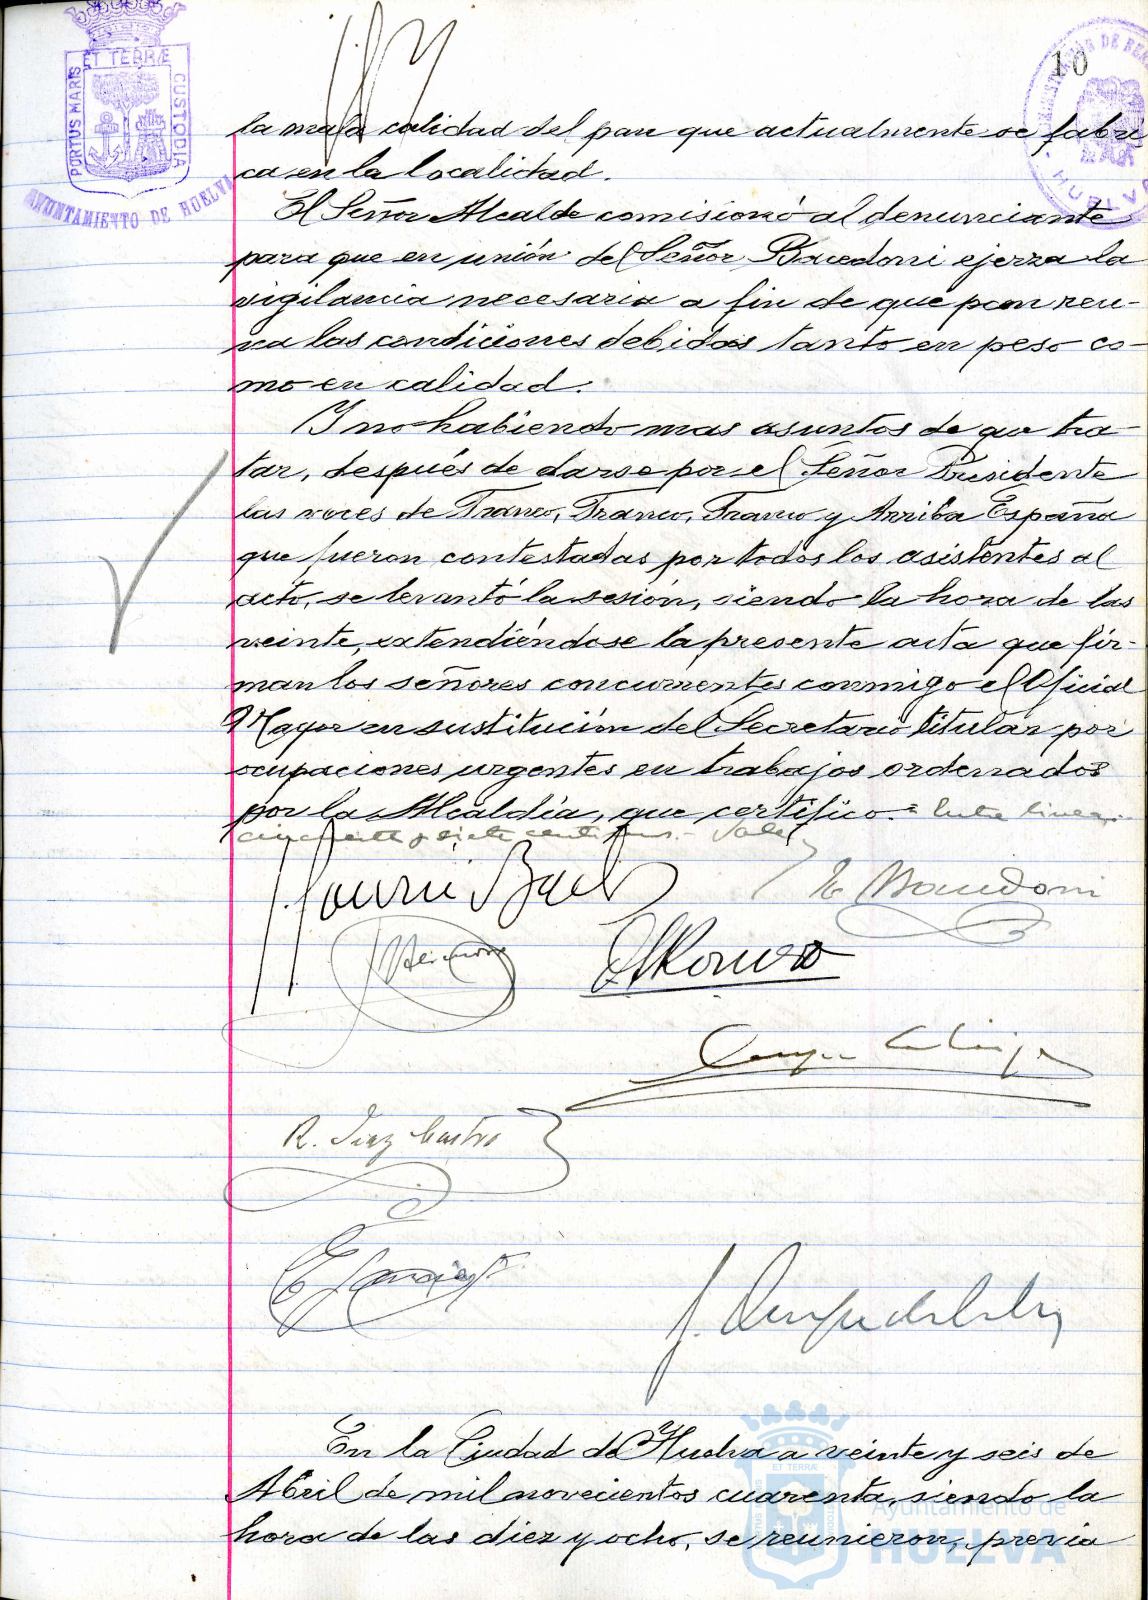 10
PORTUS MARIS ET TERRÆ CUSTODIA
AYUNTAMIENTO DE HUELVA
HUELVA
la mala calidad del pan que actualmente se fabri
ca en la localidad.
El Señor Alcalde comisionó al denunciante
para que en unión del Señor Bacedoni ejerza la
vigilancia necesaria a fin de que pan reu-
na las condiciones debidas tanto en peso co-
mo en calidad.
Y no habiendo mas asuntos de que tra-
tar, después de darse por el Señor Presidente
las voces de Franco, Franco, Franco y Arriba España
que fueron contestadas por todos los asistentes al
acto, se levantó la sesión, siendo la hora de las
veinte, extendiéndose la presente acta que fir-
man los señores concurrentes conmigo el Oficial
Mayor en sustitución del Secretario titular por
ocupaciones urgentes en trabajos ordenados
por la Alcaldía, que certifico.= Entre lineas
cincuenta y siete centimos.- Vale
R. Diaz Castro
En la Ciudad de Huelva a veinte y seis de
Abril de mil novecientos cuarenta, siendo la
hora de las diez y ocho, se reunieron, previa
Ayuntamiento de
HUELVA